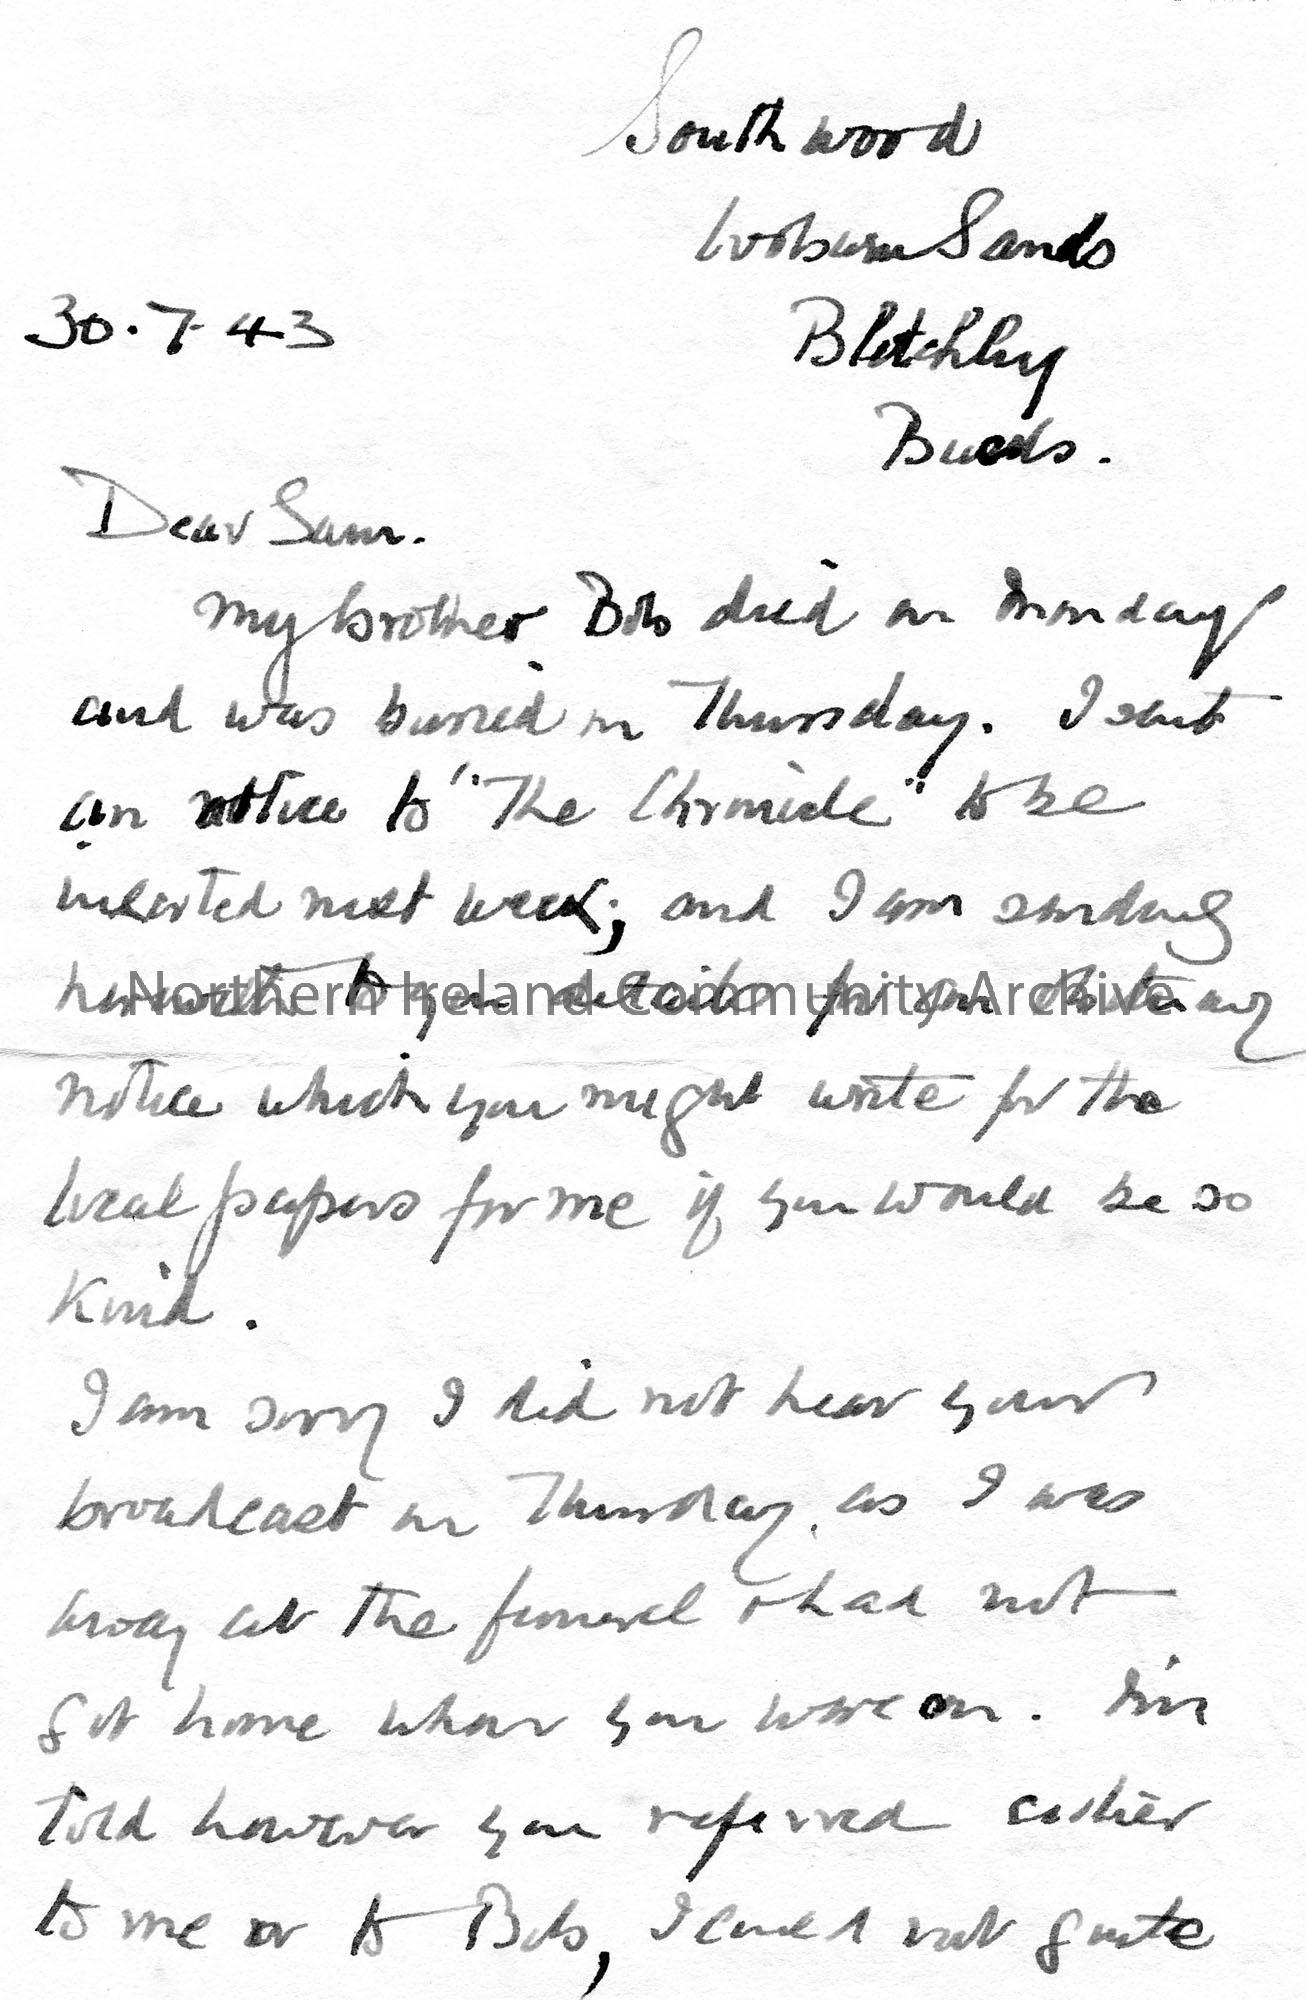 Southwood
Woburn Sands
30.7.43
Bletchley
Bucks.
Dear Sam.
My brother Bob died on Monday
and was buried on Thursday. I sent
an notice to "The Chronicle" to be
inserted next week; and I am sending
herewith to you details for an obituary
Northern Ireland Community Archive
notice which you might write for the
local papers for me if you would be so
kind.
I am sorry I did not hear your
broadcast on Thursday, as I was
away at the funeral & had not
got home when you were on. I'm
told however you referred either
to me or to Bob, I could not quite